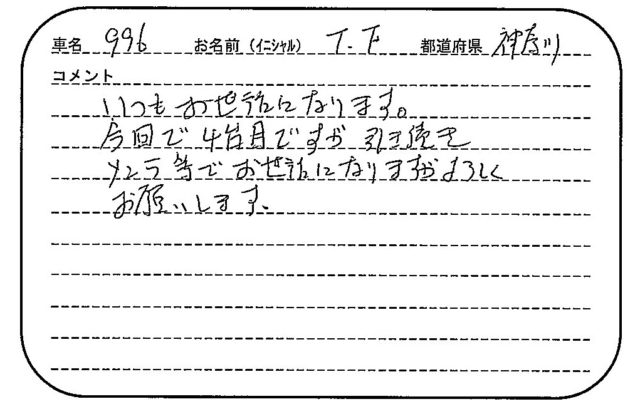 車名 996 お名前（イニシャル） T.F 都道府県 神奈川
コメント
いつもお世話になります。
今回で4台目ですが引き続き
メンテ等でお世話になりますがよろしく
お願いします。